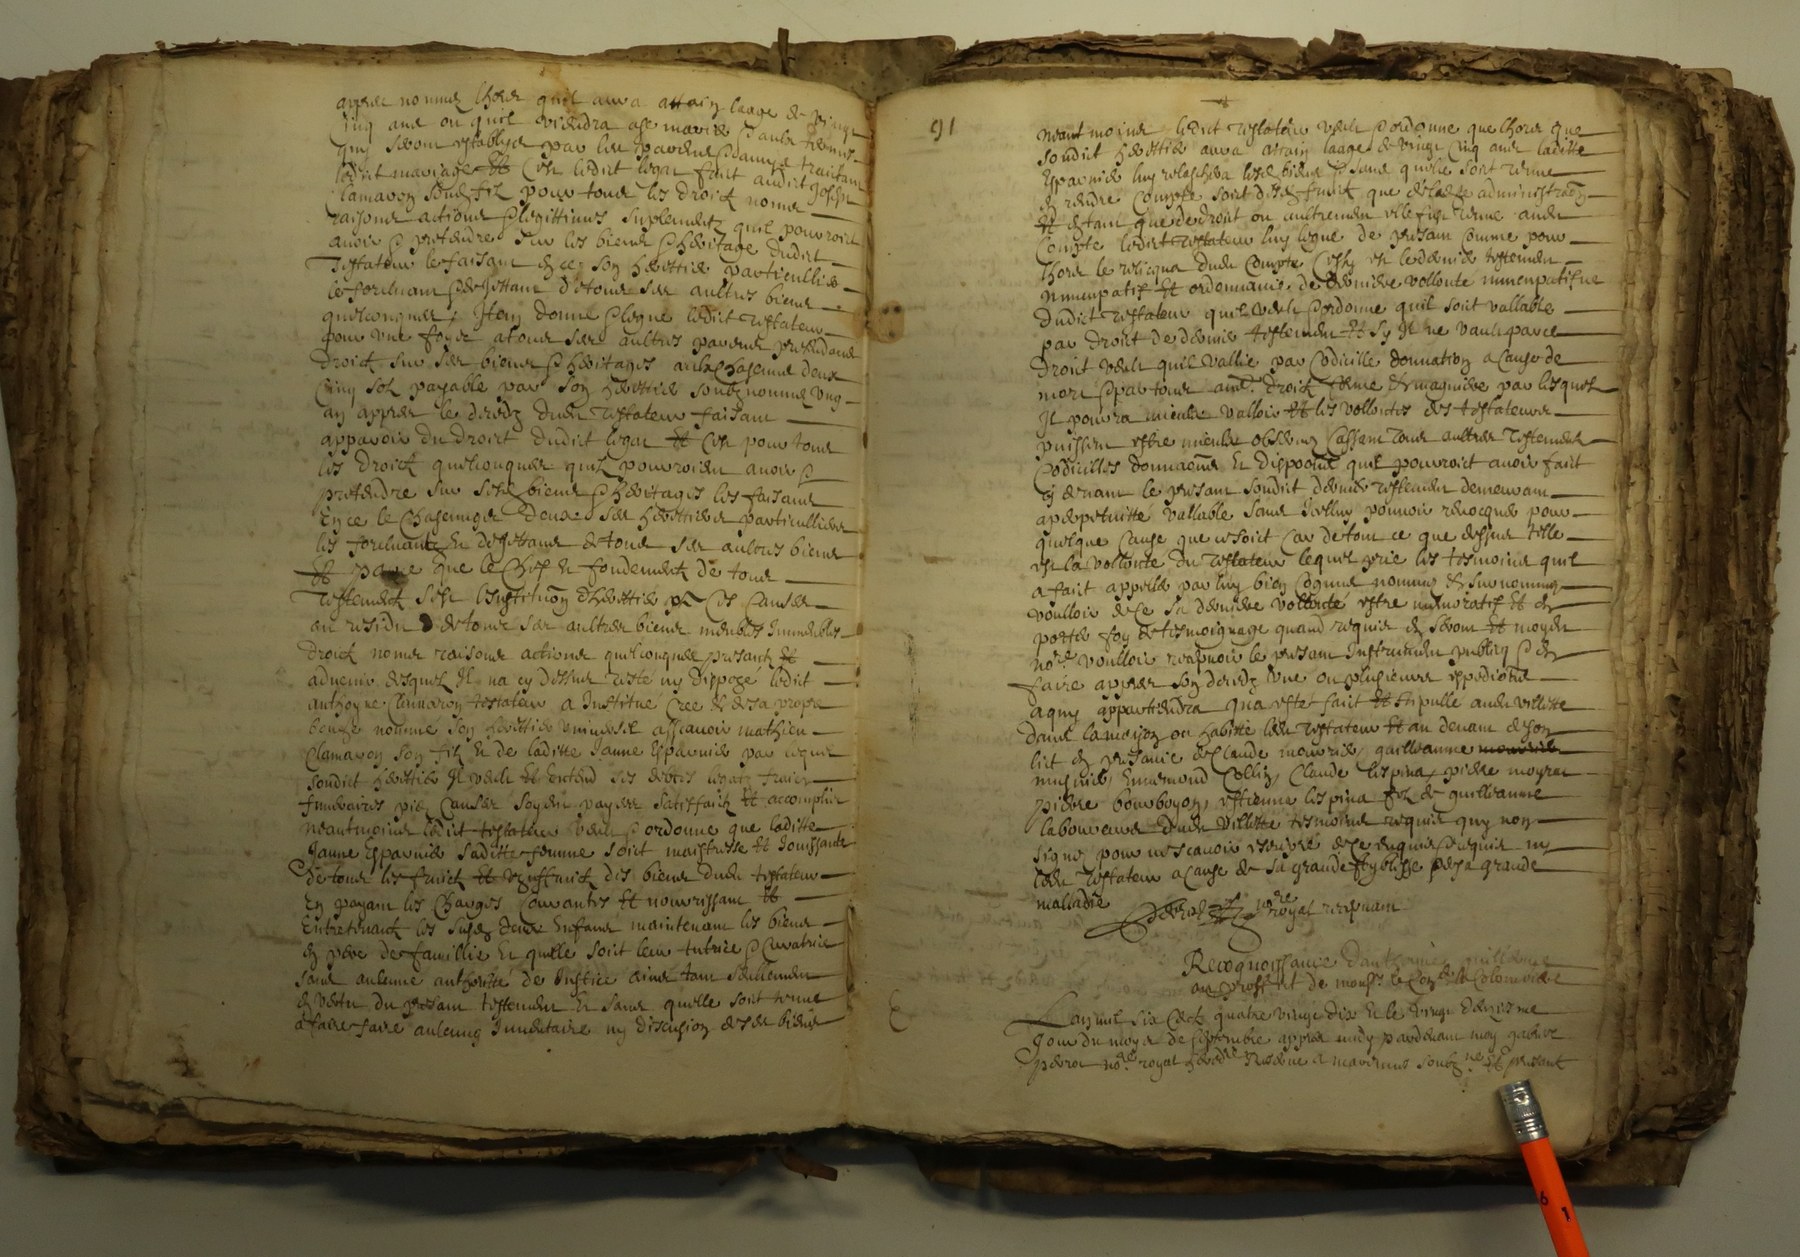 appres nommez lhors quil aura attaint laage de vingt
cinq ans ou quil viendra ase marier & aulx termes
quy seront establyes par les parens & amys traitant
ledict mariage Et cest ledict legat faict audict Joseph
Clamaron sond filz pour tous les droictz noms
raisons actions & legittimes suplementz quil pourroit
avoir & pretendre sur les biens & heritage dudict
Testateur le faisant en ce son heretier particullier
le forcluant & dejettant de tous ses aultres biens
quelconques, Item donne & legue ledict testateur
pour une foys a tous ses aultres parens pretendans
droictz sur ses biens & heritages aulx chascuns deux
Cinq solz payable par son heretier soubz nomme ung
an appres le deredz dudt testateur faisant
apparoir du droict dudict legat Et cest pour tous
les droictz quelconques quilz pourroient avoir &
pretendre sur sesd biens & heritages les faisant
En ce le chascungz deux ses heretiers particulliers
les forcluantz Et dejettans de tous ses aultres biens
Et parce que le chef Et fondement de tous
Testementz sest linstitution dheretier
au residu de tous ses aultres biens meubles Immeubles
droictz noms raisons actions quelconques presantz Et
advenir desquelz Il na cy dessus teste ny disposé ledict
anthoyne Clamaron testateur a Institué creé & de sa propre
bouche nommé son heretier universel assavoir mathieu
Clamaron son filz Et de laditte Janne esparnier par lequel
sondict heretier Il veult Et entend ses debtes legatz fraicz
funeraires piez causes soyent payees satisfaictz Et accomplies
neantmoins ledict testateur veult & ordonne que laditte
Janne esparnier saditte femme soict maistresse Et Jouissante
de tous les fruictz Et usuffruictz des biens dudt testateur
En payant les charges courantes Et nourrissant Et
Entretenantz les susd deux Enfans maintenant les biens
en pere de famillie Et quelle soict leur tutrice & curatrice
sans aulcune authorité de Justice ains tant seullement
en vertu du presant testement Et sans quelle soit tenue
a faire faire aulcung Inventaire ny discusion de ses biens
91
neantmoins ledict testateur veult & ordonne que lhors que
sondict heretier aura attain laage de vingt cinq ans laditte
Esparnier luy relaschera lesd biens & sans quelle soit tenue
en rendre compte soict des fruictz que de lad administraon
Et en tant que de droict ou aultrement elle fut tenue audt
compte ledict testateur luy legue de presant comme pour
lhors le relicqua dudt compte Cestuy est le dernier testement
nuncupatif Et ordonnance de derniere vollonté nuncupatifve
dudict testateur quil veult & ordonne quil soit vallable
par droict de dernier testement Et sy Il ne vault par ce
droict veult quil vallie par codicille donnation a cause de
mort & par tous autres droictz forme & magniere par lesquelz
Il pourra mieulx valloir Et les vollontes des testateurs
puissent estre mieulx observees Cassant tous aultres testemens
Codicilles donnaons Et disposons quil pourroict avoir faict
cy devant le presant sondict dernier testement demeurant
a perpetuitté vallable sans Icelluy pouvoir revocquer pour
quelque cause que ce soict Car de tout ce que dessus telle
est la vollonté du testateur lequel prie les tesmoins quil
a faict appeller par luy bien cogneus nommez & surnommez
voulloir de ce sa derniere vollonté estre memoratif Et en
porter foy & tesmoignage quand requis en seront Et moyen
nore voulloir recepvoir le presant Instrument publiq & en
faire appres son deredz une ou plusieurs expeditions
a quy appartiendra qua esté faict Et stipullé audt villette
dans la maison ou habitte led testateur Et au devant de son
lict en presance de Claude mounier, guilleaume
musnier, Enremond Collin, Claude lespina, pierre moyrat
pierre bourboyon, estienne lespina filz de guilleaume
laboureurs dudt villette tesmoins requis quy non
signez pour ne scavoir escrire de ce enquis & requis ny
led testateur a cause de sa grande foyblesse & de sa grande
malladie
nore royal recepvant
Recognoissance danthoine guilleaume
au proffict de monsr le Con de Colombiere
Lan mil six centz quatre vingt dix Et le vingt deuxiesme
Jour du moys de septembre appres midy pardevant moy gabriel
perrot nore royal hereditre reserve a soubzné Et presant